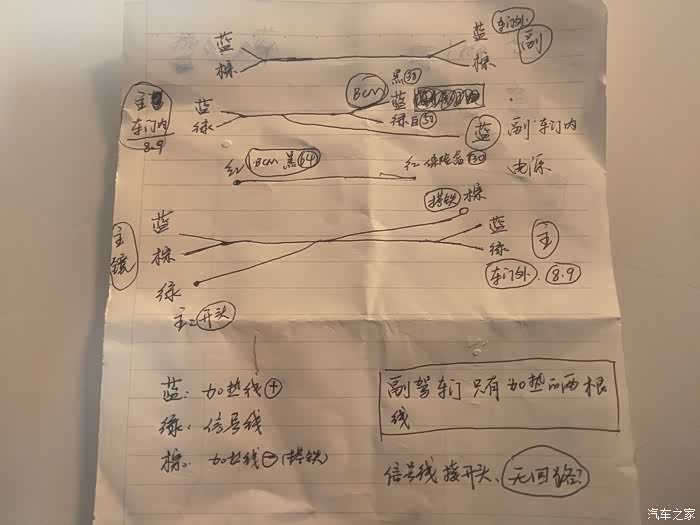 蓝 蓝 车门外
棕 棕 副
主 蓝 BCM 黑38 蓝
车门内 绿 绿 白51 蓝 副 车门内
8.9
红 BCM 黑64 红 保险盒 F30 电源
搭铁 棕
主镜 蓝 蓝
棕 绿 主
绿 车门外 8.9
主:开关
蓝:加热线+
绿:信号线
棕:加热线-(搭铁)
副驾车门只有加热的两根
线
信号线接开关、无回路?
汽车之家